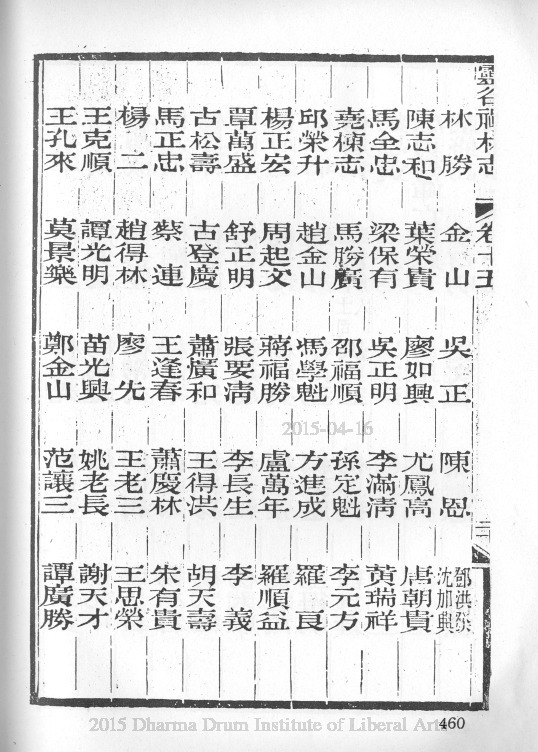 靈谷禪林志
卷十五
林勝　金山　吳正　陳恩　鄧洪發
沈加興
陳志和　葉榮貴　廖如興　尤鳳高　唐朝貴
馬全忠　梁保有　吳正明　李滿淸　黃瑞祥
堯棟志　馬勝廣　邵福順　孫定魁　李元方
邱榮升　趙金山　馮學魁　方進成　羅良
楊正宏　周起文　蔣福勝　盧萬年　羅順益
覃萬盛　舒正明　張要淸　李長生　李義
古松壽　古登慶　蕭廣和　王得洪　胡天壽
馬正忠　蔡連　王逢春　蕭慶林　朱有貴
楊二　趙得林　廖先　王老三　王思榮
王克順　譚光明　苗光興　姚老長　謝天才
王孔來　莫景樂　鄭金山　范讓三　譚廣勝
2015-04-16
2015 Dharma Drum Institute of Liberal Arts
460